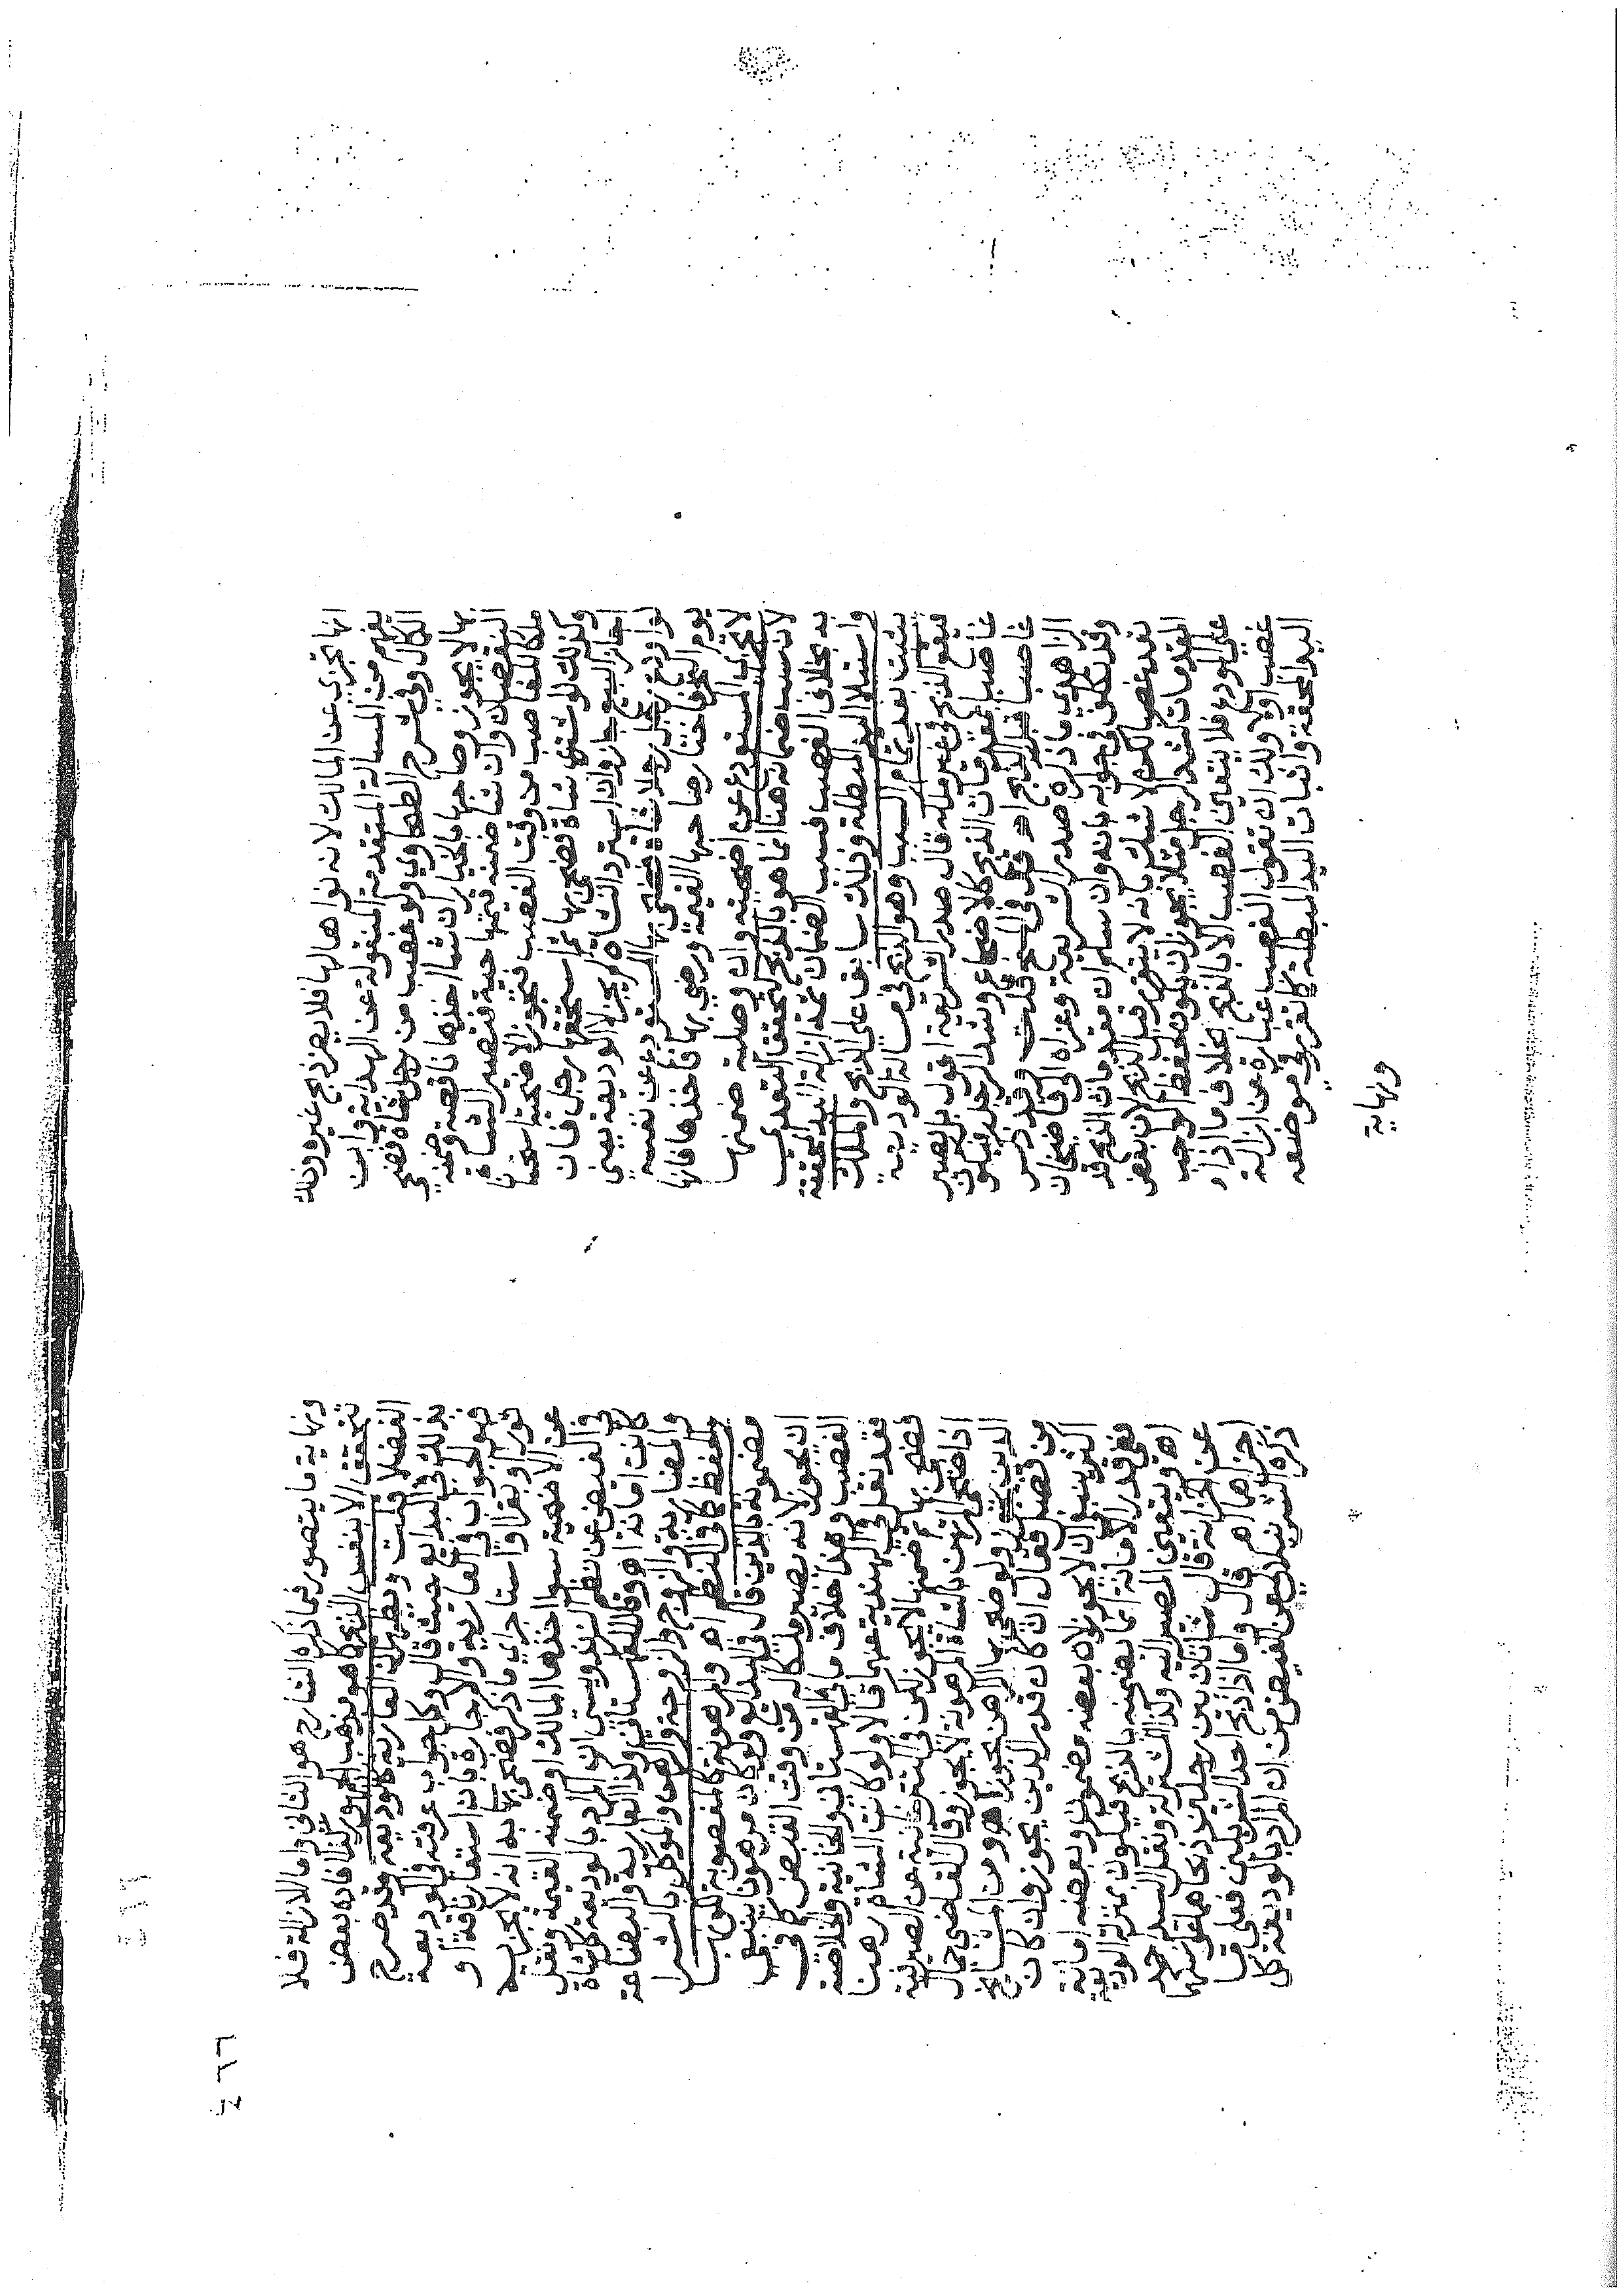 انها تجزي عن المالك لانه نواها لها فلا يضر ذبح غيره وذلك
يفهم من المسالة المتقدمة المنقولة عن الهداية وابن
الكمال وفي شرح الطحاوي ولو غصب من رجل شاة فضحي
بها لا يجوز وصاحبها بالخيار ان شا اخذها ناقصة وضمنه
النقصان وان شا ضمنه قيمتها حية فتصير الشاة
ملكا للغاصب من وقت الغصب فتجوز الاضحية استحسانا
وكذلك لو اشترى شاة فضحى بها ثم استحقها رجل فان
اجاز البيع جاز وان استرد الشاة لم يجز لا الوديعة يعني
لو اودع رجل رجلا شاة فضحى بها المستودع عن نفسه
يوم النحر فاختار صاحبها القيمة ورضي بها فاخذها فانها
لا تجزي المستودع عن اضحيته وان وصلية ضمنها
لان سبب ضمانه هنا انما هو بالذبح ليتحقق التعدي
به بخلاف الغصب فسبب الضمان ثمة ازالة اليد المحقة
واستيلا اليد المبطلة وذلك سابق على الذبح والملك
يثبت بعد تمام السبب وهو الذبح في مسالة الوديعة
فيقع الذبح في غير ملكه قال صدر الشريعة اقول بل يصير
غاصبا بمقدمات الذبح كالاضجاع وشد الرجل فيكون
غاصبا قبل الذبح اه فهي في المنح قلت وقد ذكر
الزاهدي ما ذكره صدر الشريعة وعزاه الى قاضيخان
وقد تكلف في جوابه بانه وان سلم ان مقدمات الذبح قد
تعد غصبا لكن لا شك بانه لا يتقرر قبل الذبح لان بعض
المقدمات كشد الرجل مثلا يجوز ان يكون لحفظ الوجه
على المودع فلا يتعين الغصب الا بالذبح بخلاف ما اذا
غصب اولا ولك ان تقول الغصب عبارة عن ازالة
اليد المحقة واثبات اليد المبطلة كما تقرر في موضعه
ونهاية
ونهاية ما يتصور فيما ذكره الشارح هو الثاني واما الازالة فلا
تتحقق الا بنفس الذبح كما هو مذهب افاده بعض
الفضلا قلت ويظهر ان العارية كالوديعة وقد صرح
بذلك في البدايع حيث قال وكل جواب عرفته في الوديعة
فهو الجواب في العارية والاجارة بان استعار ناقة او
ثورا او بقرا او استاجره اي ما ذكر فضحى به انه لا يجزيه
عن الاضحية سوا اخذها المالك او ضمنه القيمة ونقل
في الفيض عن نظم الزندويستي ان المراد بالوديعة كل شاة
كانت امانة اه وقال القهستاني وكذا العارية والبضاعة
والمضاربة والزوج والزوجة والرهن والموكل بالشرا
والحفظ كما في النظم اه والمرهونة كالمغصوبة لكونها
مضمونة بالدين قال في البدايع ولو كان مرهونا ينبغي
ان يجوز لانه يصير ملكا له من وقت القبض كما في
الغصب وهذا خلاف ما في القهستاني والخانية والخلاصة
فقد نقل في الهندية عنهما قالا ولو كانت الشاة رهنا
فضحى بها ضمنها لا يجوز لكن في الشرنبلالية عن الصيرفية
اذا ضحى المرتهن بالشاة المرهونة لا يجوز وقال القاضي جمال
الدين يجوز ولو ضحى بها الراهن يجوز اه ومن المشايخ
من فصل فقال ان كان قدر الدين يجوز وان كان
اكثر ينبغي ان لا يجوز لان بعضه مضمون وبعضه امانة
ففي قدر الامانة انما يضمنه بالذبح فيكون بمنزلة الوديعة
اه ويتعين المصير اليه وكذا المشتركة ونقل السيد احمد
عن الخزانة قال شاتان بين رجلين ذبحاهما عن نسكهما
اجزاهما اه قال واما اذا ذبح احد الشريكين فعلى قياس
ذكره الشرنبلالي عن الفيض من ان المراد بالوديعة كل
٤٦٦